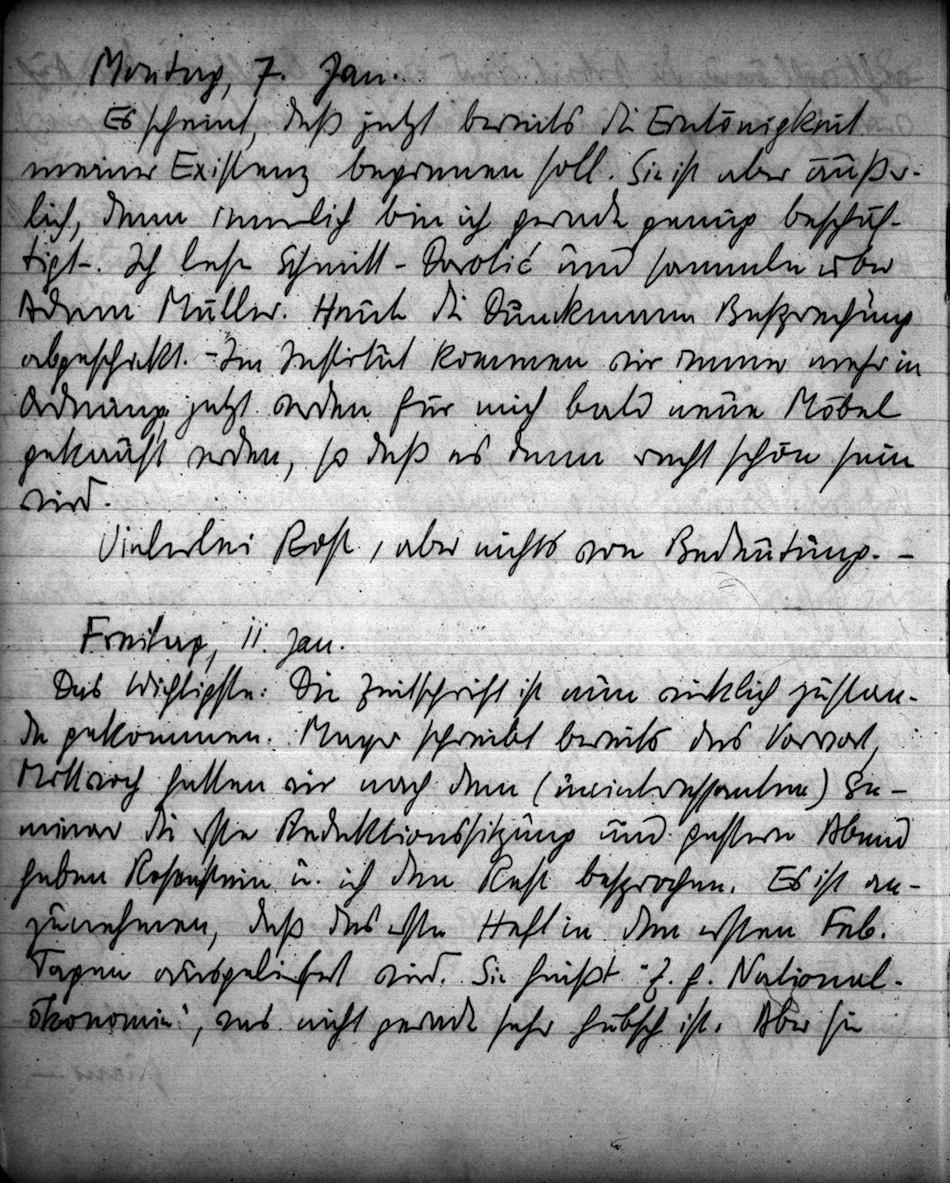 Montag, 7. Jan.
Es scheint, daß jetzt bereits die Eintönigkeit
meiner Existenz beginnen soll. Sie ist aber äußer-
lich, denn innerlich bin ich gerade genug beschäf-
tigt. Ich lese Schmitt - und sammele über
Adam Müller. Heute die Dunkmann Besprechung
abgeschickt. - Im Institut kommen wir immer mehr in
Ordnung, jetzt werden für mich bald neue Möbel
gekauft werden, so daß es dann recht schön sein
wird.
Vielerlei Post, aber nichts von Bedeutung. -
Freitag, 11. Jan.
Das Wichtigste: Die Zeitschrift ist nun wirklich zustan-
de gekommen. Mayer schreibt bereits das Vorwort,
Mittwoch hatten wir nach dem (uninteressanten) Se-
minar die erste Redaktionssitzung und gestern Abend
haben Rosenstein u. ich den Rest besprochen. Es ist an-
zunehmen, daß das erste Heft in den ersten Feb.
Tagen ausgeliefert wird. Sie heißt "Z. f. National-
ökonomie", was nicht gerade sehr hübsch ist. Aber sie